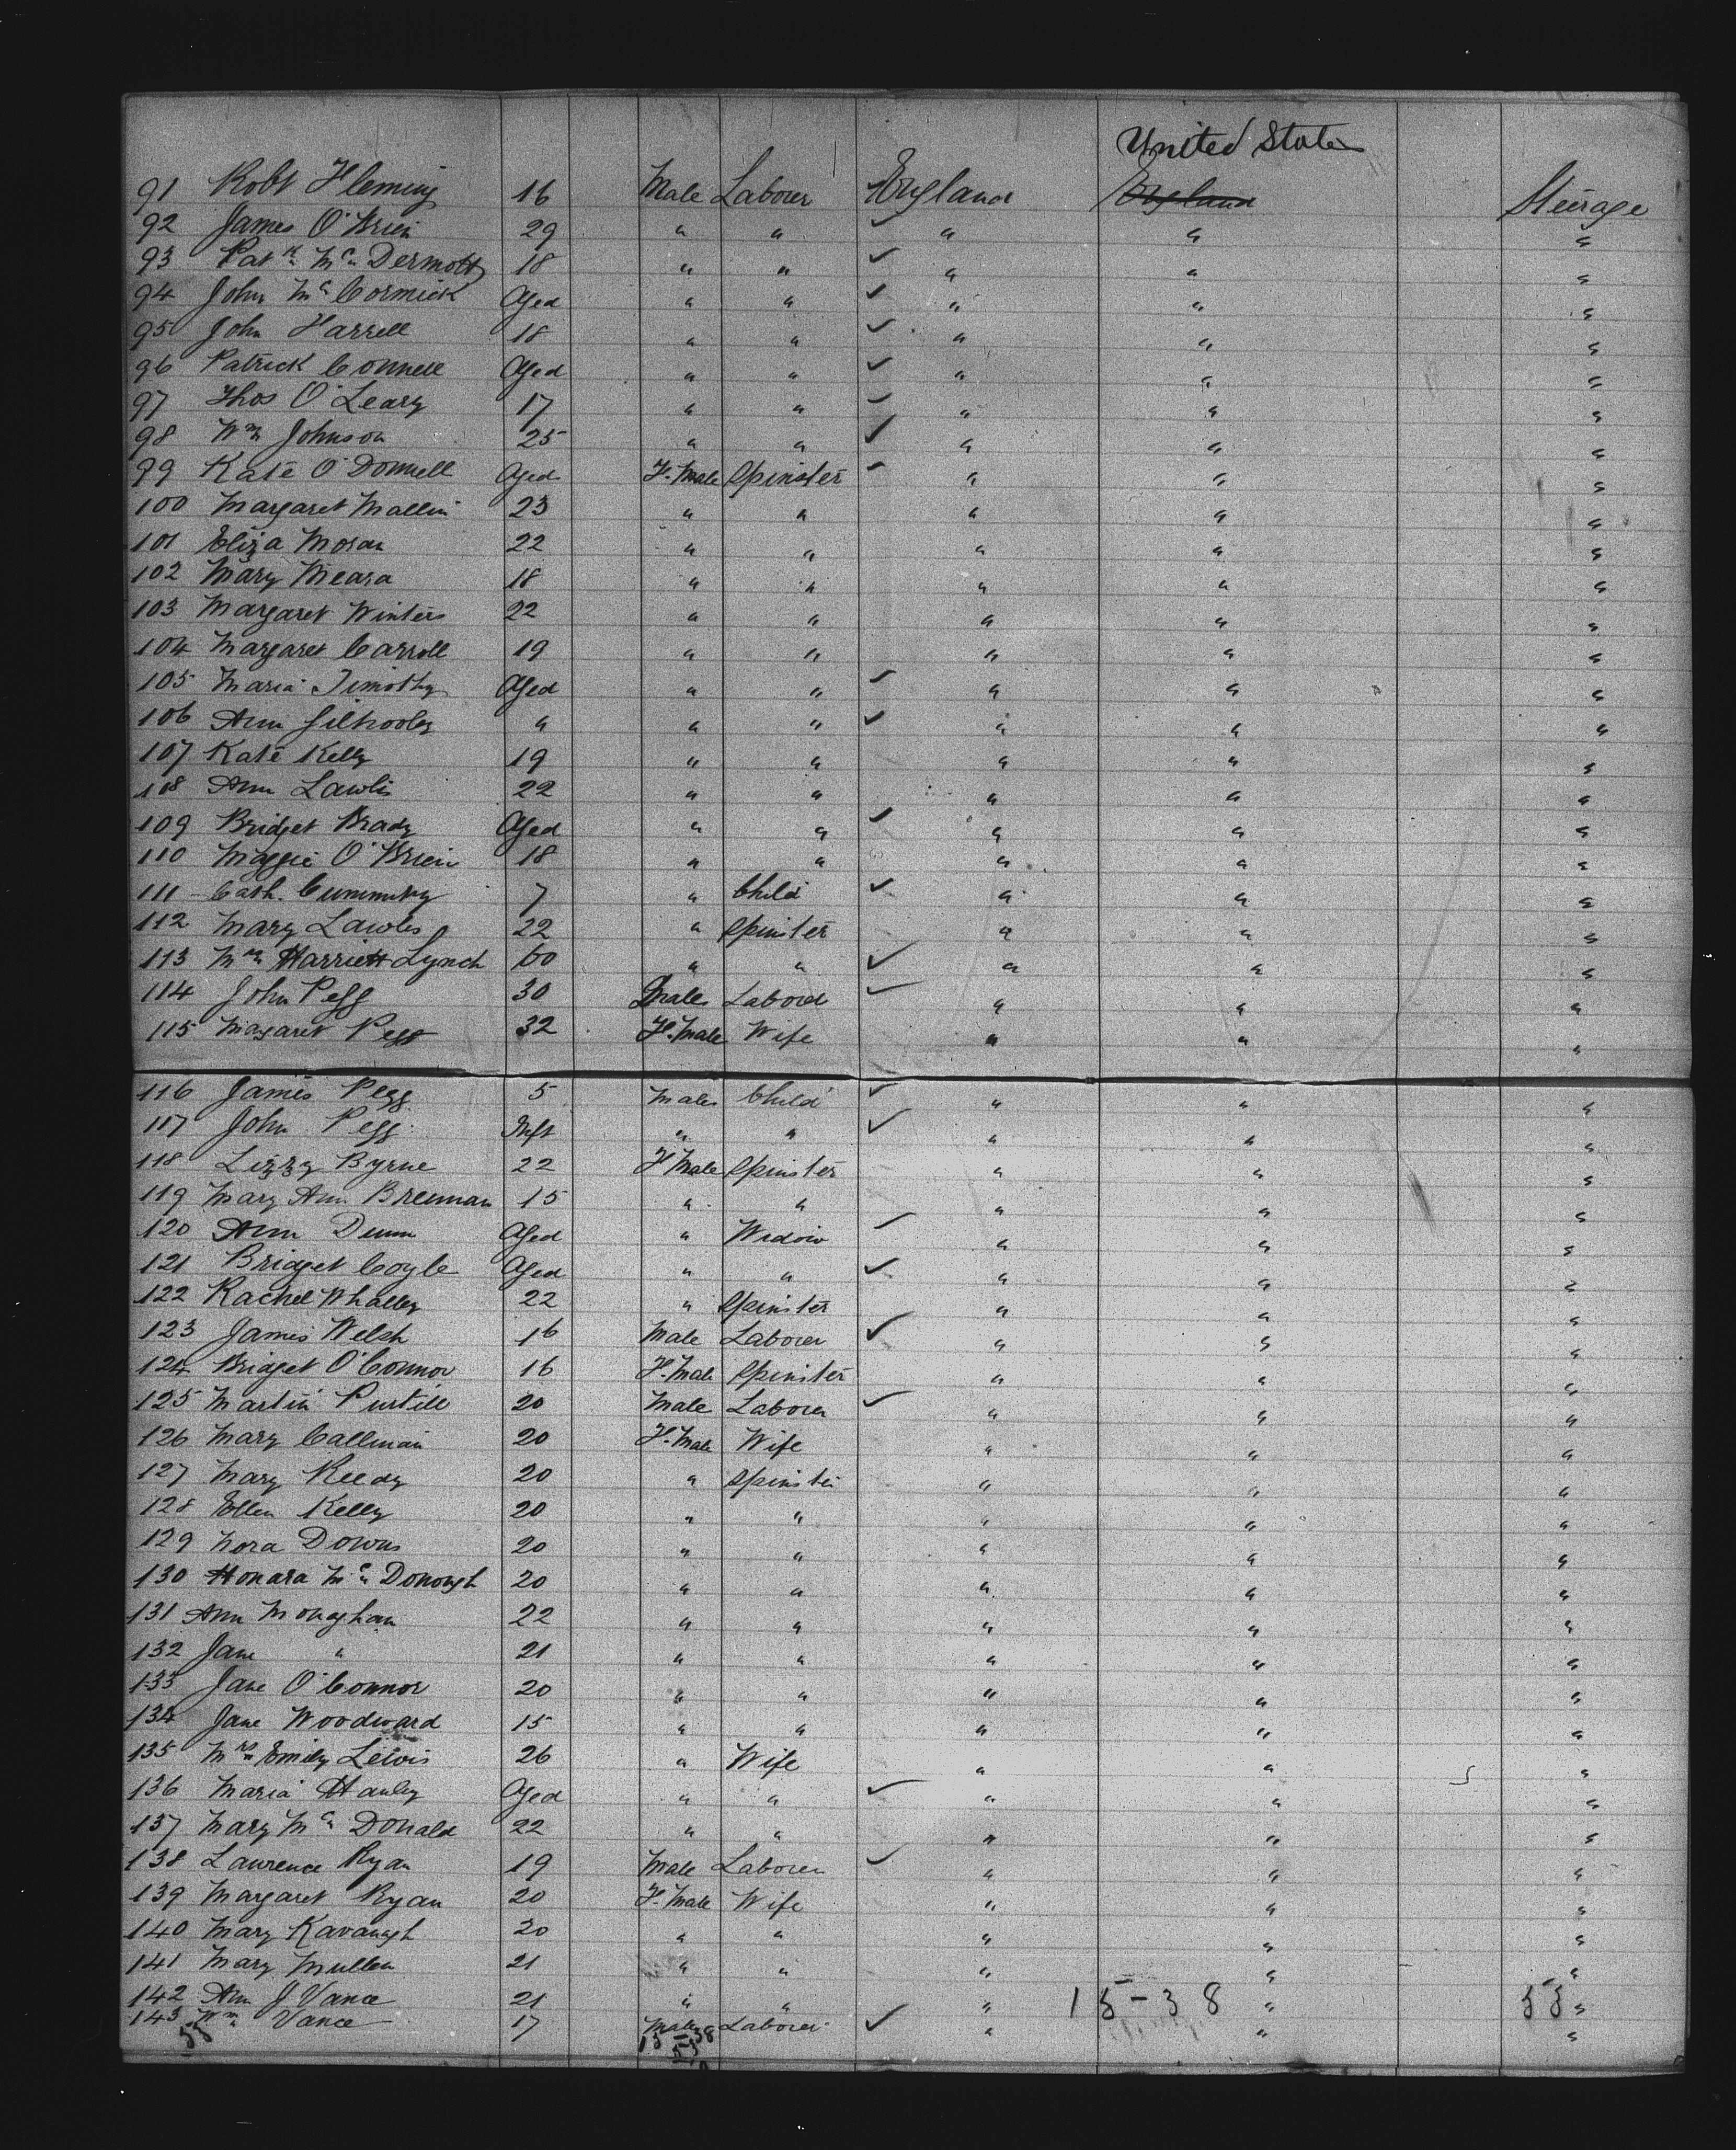 United States
91 Robt Fleming 16 Male Laborer England England Steerage
92 James O'Brien 29 " " " " "
93 Patk McDermott 18 " " " " "
94 John McCormick Aged " " " " "
95 John Harrell 18 " " " " "
96 Patrick Connell Aged " " " " "
97 Thos O'Leary 17 " " " " "
98 Wm Johnson 25 " " " " "
99 Kate O'Donnell Aged F. Male Spinster " " "
100 Margaret Mallin 23 " " " " "
101 Eliza Moran 22 " " " " "
102 Mary Meara 18 " " " " "
103 Margaret Winters 22 " " " " "
104 Margaret Carroll 19 " " " " "
105 Maria Timothy Aged " " " " "
106 Ann Gilhooley " " " " " "
107 Kate Kelly 19 " " " " "
108 Ann Lawlis 22 " " " " "
109 Bridget Brady Aged " " " " "
110 Maggie O'Brien 18 " " " " "
111 Cath. 7 " Child " " "
112 Mary Lawles 22 " Spinster " " "
113 Mrs Harriett Lynch 60 " " " " "
114 John Pegg 30 Male Laborer " " "
115 Margaret Pegg 32 F. Male Wife " " "
116 James Pegg 5 Male Child " " "
117 John Pegg Inft " " " " "
118 Lizzy Byrne 22 F Male Spinster " " "
119 Mary Ann Brennan 15 " " " " "
120 Ann Dunn Aged " Widow " " "
121 Bridget Coyle Aged " " " " "
122 Rachel Whalley 22 " Spinster " " "
123 James Welsh 16 Male Laborer " " "
124 Bridget O'Connor 16 F. Male Spinster " " "
125 Martin Purtill 20 Male Laborer " " "
126 Mary Callinan 20 F. Male Wife " " "
127 Mary Reedy 20 " Spinster " " "
128 Ellen Kelly 20 " " " " "
129 Nora Downs 20 " " " " "
130 Honara McDonough 20 " " " " "
131 Ann Monaghan 22 " " " " "
132 Jane " 21 " " " " "
133 Jane O'Connor 20 " " " " "
134 Jane Woodward 15 " " " " "
135 Mrs Emily Lewis 26 " Wife " " "
136 Maria Hanley Aged " " " " "
137 Mary McDonald 22 " " " " "
138 Lawrence Ryan 19 Male Laborer " " "
139 Margaret Ryan 20 F. Male Wife " " "
140 Mary Kavanagh 20 " " " " "
141 Mary Mullen 21 " " " " "
142 Ann J Vance 21 " " " 15-38 " 53 "
143 Wm Vance 17 Male Laborer " " "
53 15-38
53